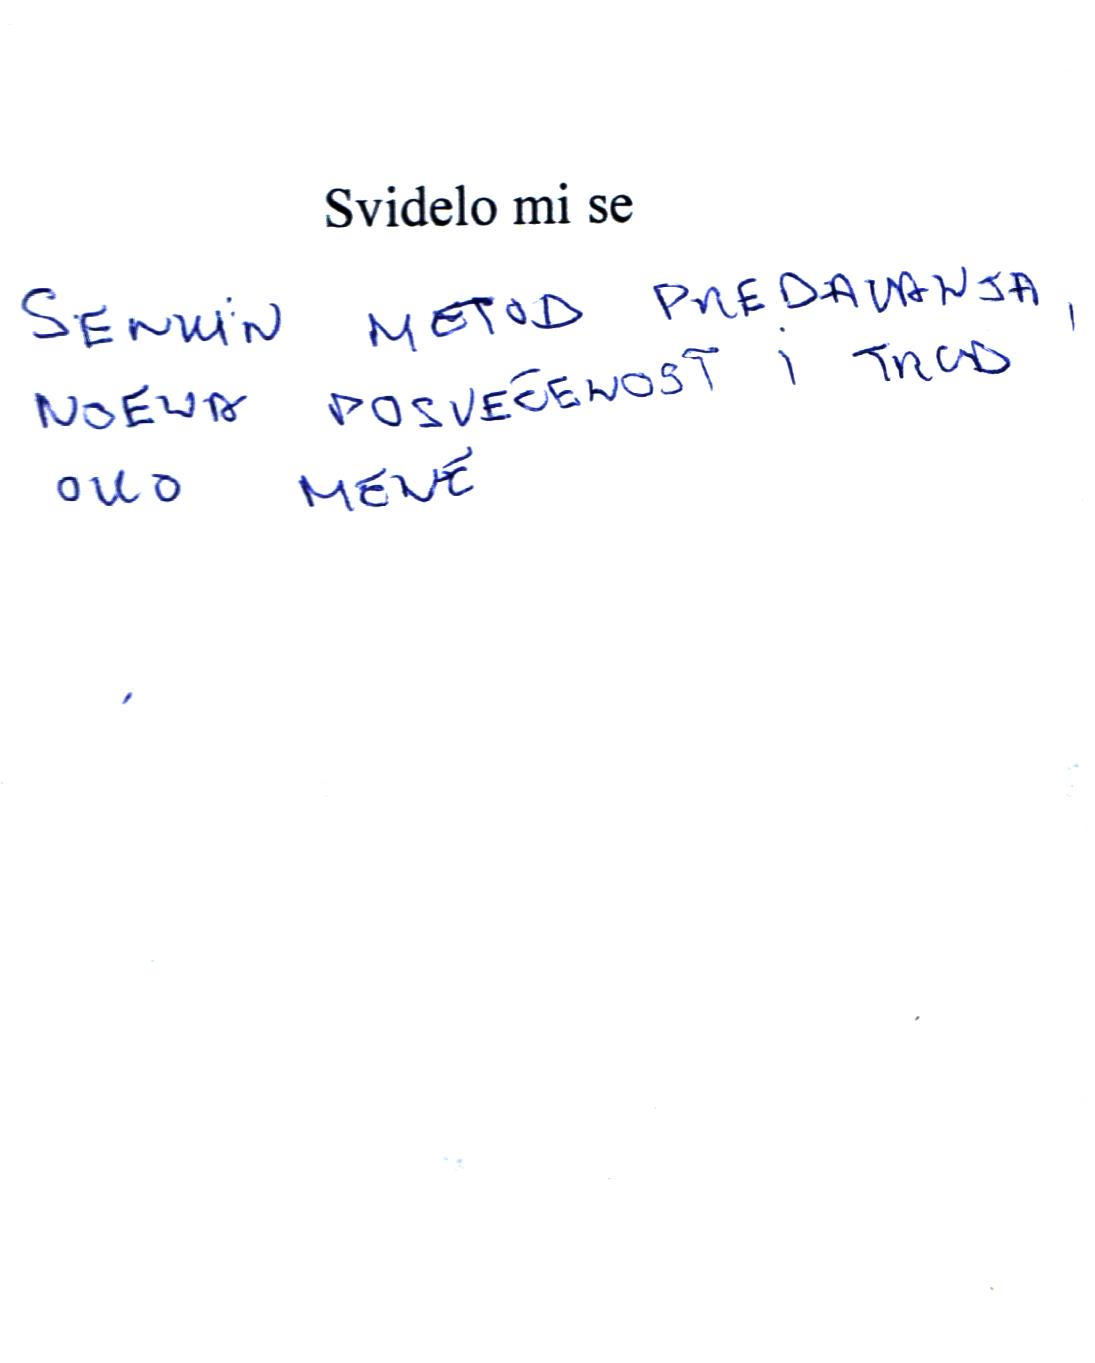 Svidelo mi se
SENKIN METOD PREDAVANJA,
NJENA POSVEĆENOST I TRUD
OKO MENE